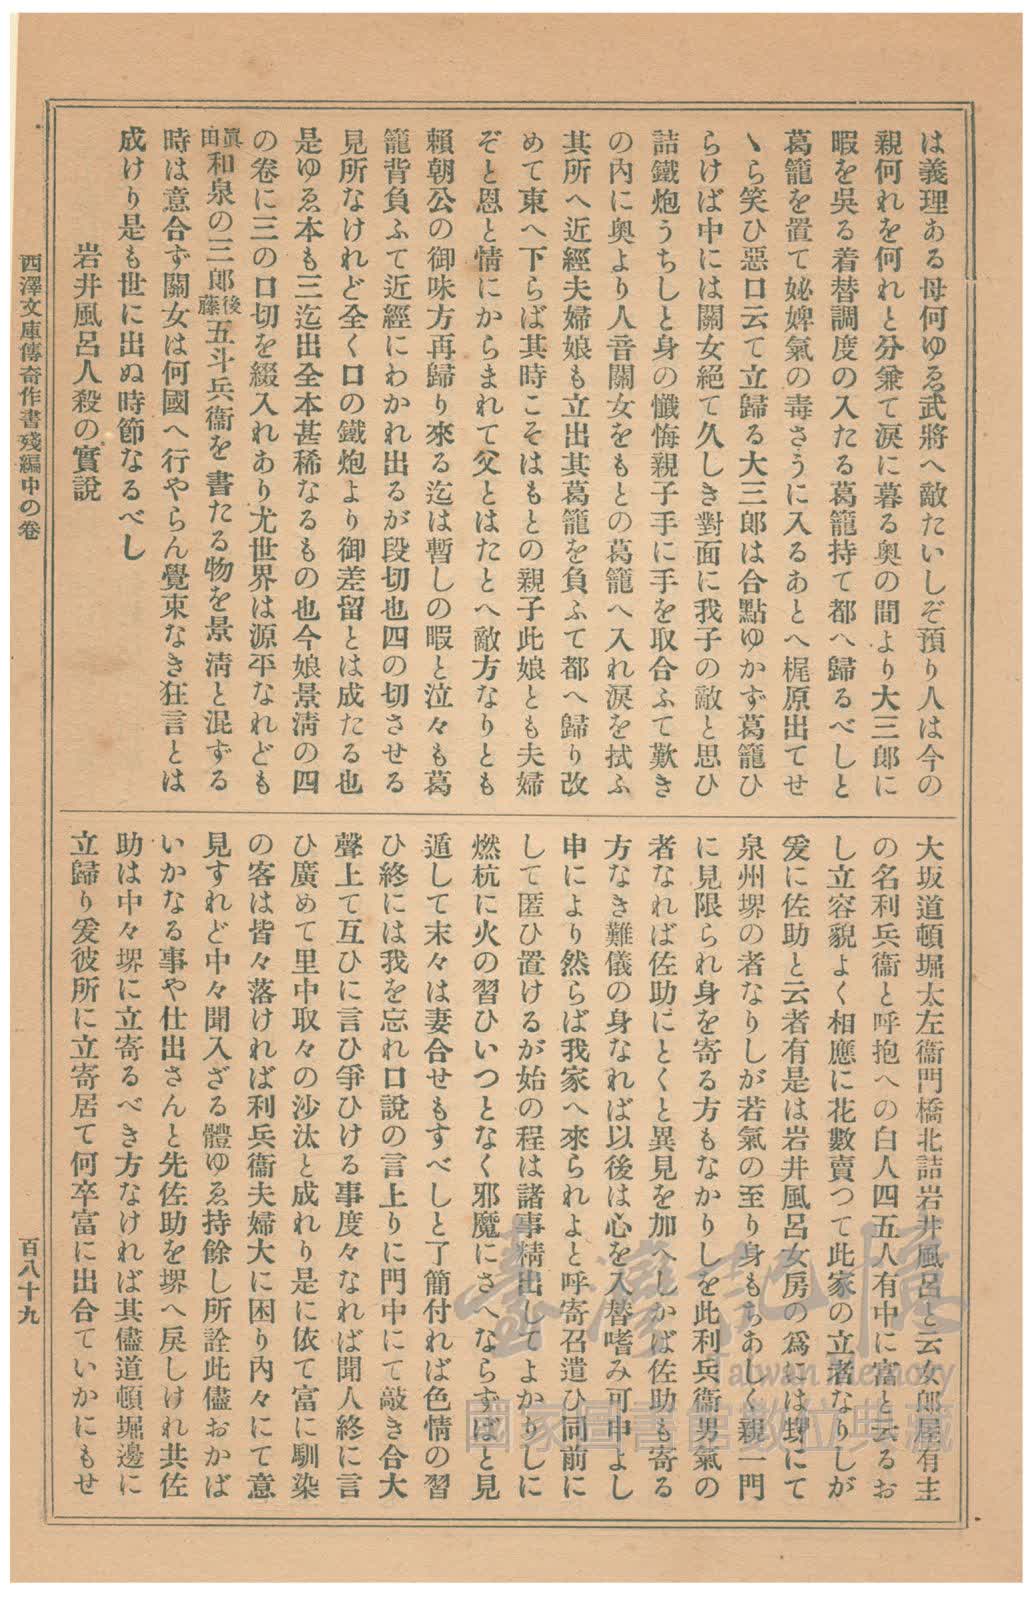 は義理ある母何ゆゑ武將へ敵たいしぞ預り人は今の
親何れを何れと分兼て涙に暮る奥の間より大三郎に
暇を呉る着替調度の入たる葛籠持て都へ歸るべしと
葛籠を置て妼婢氣の毒さうに入るあとへ梶原出てせ
ゝら笑ひ惡口云て立歸る大三郎は合點ゆかず葛籠ひ
らけば中には關女絕て久しき對面に我子の敵と思ひ
詰鐵炮うちしと身の懺悔親子手に手を取合ふて歎き
の內に奥より人音關女をもとの葛籠へ入れ淚を拭ふ
其所へ近經夫婦娘も立出其葛籠を負ふて都へ歸り改
めて東へ下らば其時こそはもとの親子此娘とも夫婦
ぞと恩と情にからまれて父とはたとへ敵方なりとも
賴朝公の御味方再歸り來る迄は暫しの暇と泣々も葛
籠背負ふて近經にわかれ出るが段切也四の切させる
見所なけれど全く口の鐵炮より御差留とは成たる也
是ゆゑ本も三迄出全本甚稀なるもの也今娘景淸の四
の卷に三の口切を綴入れあり尤世界は源平なれども
眞田和泉の三郞後藤五斗兵衞を書たる物を景淸と混ずる
時は意合ず關女は何國へ行やらん覺束なき狂言とは
成けり是も世に出ぬ時節なるべし
岩井風呂人殺の實說
大坂道頓堀太左衞門橋北詰岩井風呂と云女郞屋有主
の名利兵衞と呼抱への白人四五人有中に富と云るお
し立容貌よく相應に花數賣つて此家の立者なりしが
爰に佐助と云者有是は岩井風呂女房の爲には甥にて
泉州堺の者なりしが若氣の至り身もちあしく親一門
に見限られ身を寄る方もなかりしを此利兵衞男氣の
者なれば佐助にとくと異見を加へしかば佐助も寄る
方なき難儀の身なれば以後は心を入替嗜み可申よし
申により然らば我家へ來られよと呼寄召遣ひ同前に
して匿ひ置けるが始の程は諸事精出してよかりしに
燃杭に火の習ひいつとなく邪魔にさへならずばと見
遁して末々は妻合せもすべしと了簡付れば色情の習
ひ終には我を忘れ口說の言上りに門中にて敲き合大
聲上て互ひに言ひ爭ひける事度々なれば聞人終に言
ひ廣めて里中取々の沙汰と成れり是に依て富に馴染
の客は皆々落ければ利兵衞夫婦大に困り內々にて意
見すれど中々聞入ざる體ゆゑ持餘し所詮此儘おかば
いかなる事や仕出さんと先佐助を堺へ戾しけれ共佐
助は中々堺に立寄るべき方なければ其儘道頓堀邊に
立歸り爰彼所に立寄居て何卒富に出合ていかにもせ
西澤文庫傳奇作書殘編中の卷
百八十九
臺灣記憶
Taiwan Memory
國家圖書館數位典藏